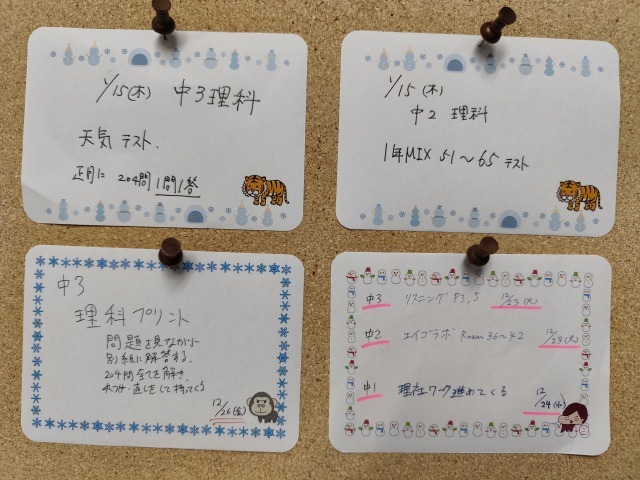 1/15(木) 中3理科
天気テスト.
正月に 204問 1問1答
1/15(木)
中2 理科
1年MIX 51〜65 テスト
中3
理科プリント
問題を見ながら
別紙に解答する.
204問全てを解き,
丸つけ・直しをして持ってくる
12/26(金)
中3 リスニング P3,5 12/23(火)
中2 エイゴラボ Room 36〜42 12/23(火)
中1 理社ワーク進めてくる 12/24(水)